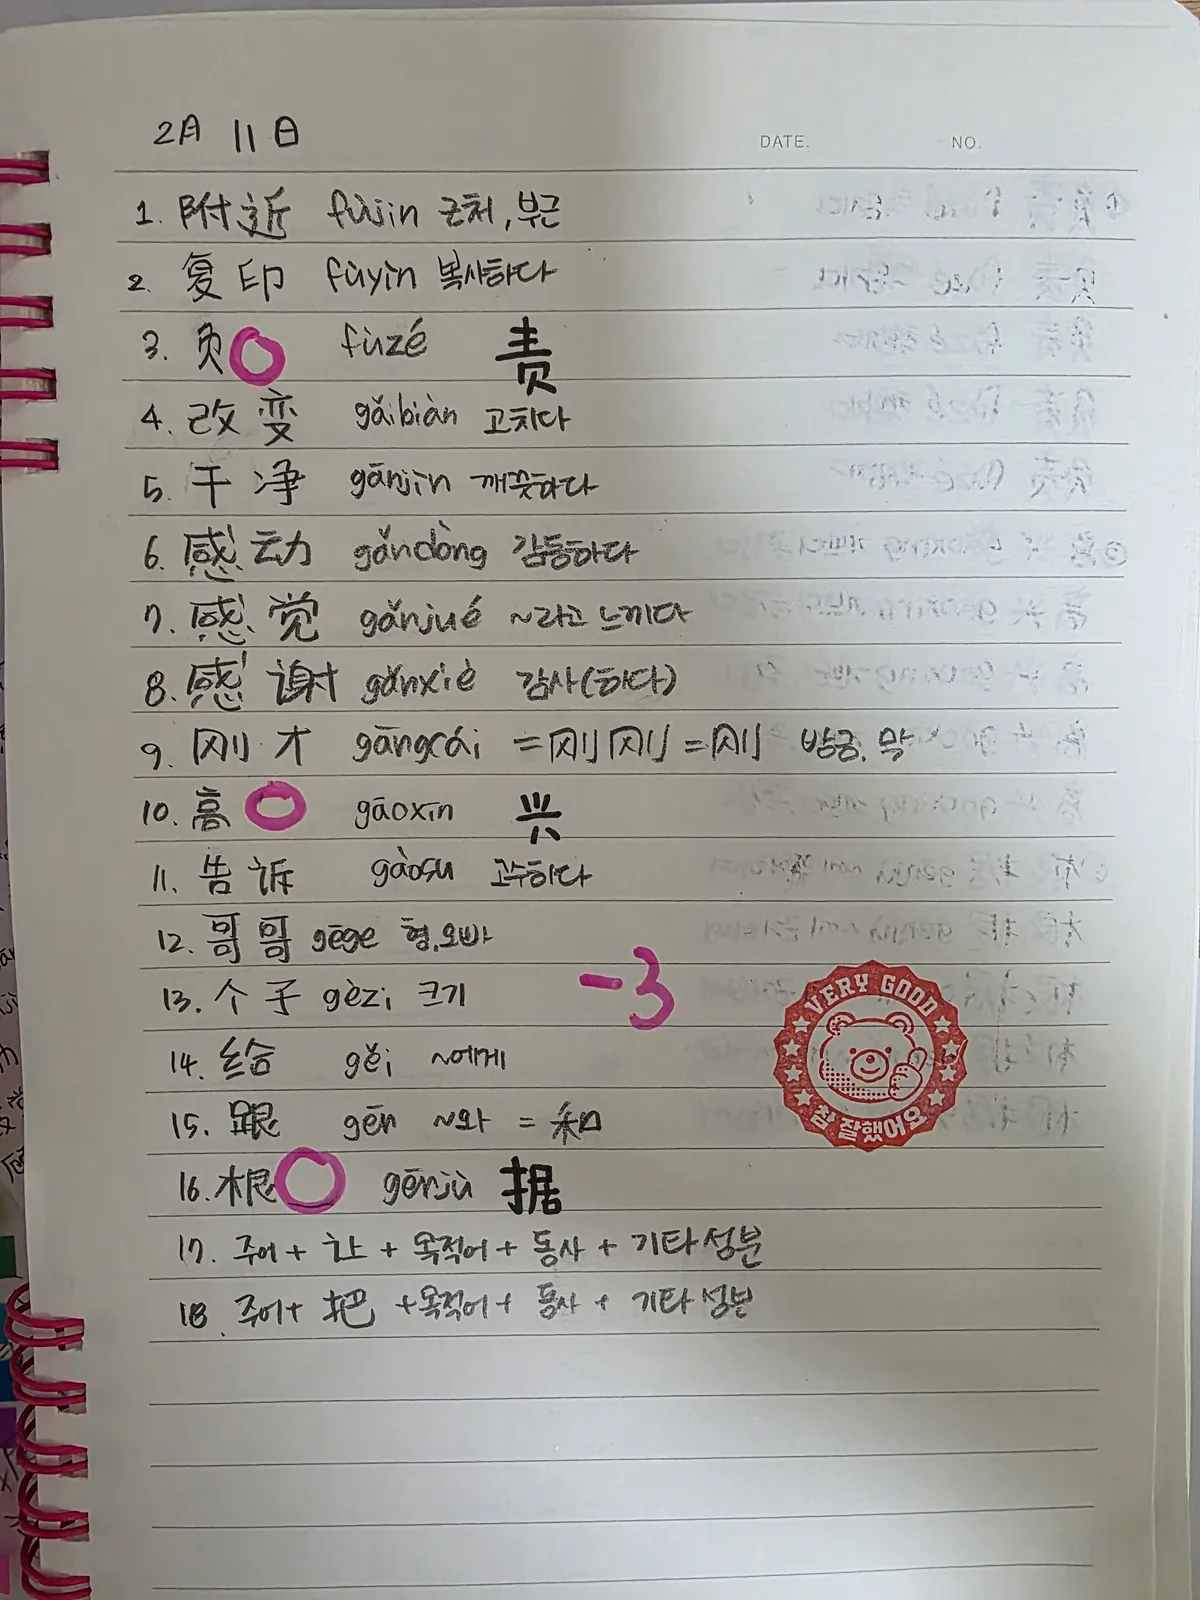 2月 11日
DATE.
NO.
1. 附近 fùjìn 근처, 부근
2. 复印 fùyìn 복사하다
3. 负 fùzé 责
4. 改变 gǎibiàn 고치다
5. 干净 gānjìn 깨끗하다
6. 感动 gǎndòng 감동하다
7. 感觉 gǎnjué ~라고 느끼다
8. 感谢 gǎnxiè 감사(하다)
9. 刚才 gāngcái =刚刚 =刚 방금, 막
10. 高 gāoxīn 兴
11. 告诉 gàosu 고수하다
12. 哥哥 gēge 형, 오빠
13. 个子 gèzi 크기
-3
14. 给 gěi ~에게
15. 跟 gēn ~와 = 和
VERY GOOD
참 잘했어요
16. 根 gēnjù 据
17. 주어 + 让 + 목적어 + 동사 + 기타성분
18. 주어 + 把 + 목적어 + 동사 + 기타성분